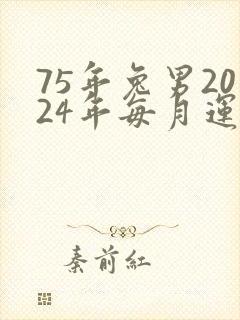 75年兔男20
24年每月運
秦前紅